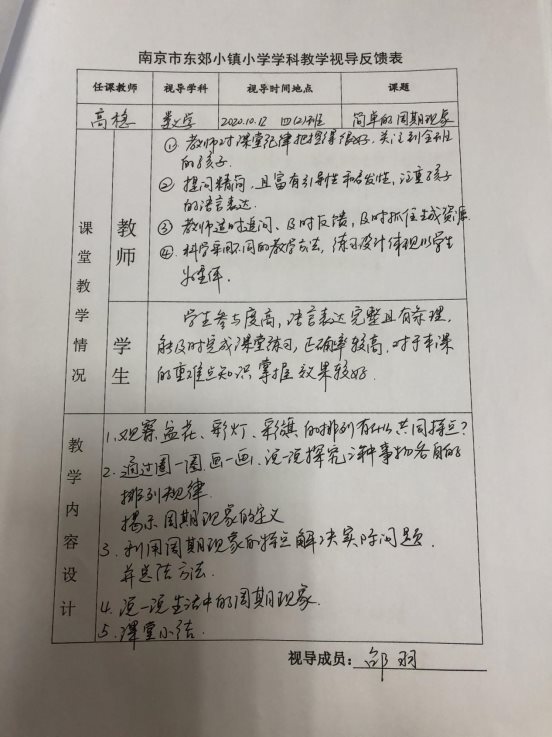 南京市东郊小镇小学学科教学视导反馈表
任课教师 视导学科 视导时间地点 课题
高穂 数学 2020.10.12 四(2)班 简单的周期现象
课堂教学情况
教师
① 教师对课堂纪律把握得很好,关注到全班
的孩子.
② 提问精简,且富有引导性和启发性,注重孩子
的语言表达.
③ 教师适时追问、及时反馈,及时抓住生成资源
④ 科学采用不同的教学方法,练习设计体现以学生
为主体.
学生
学生参与度高,语言表达完整且有条理,
能及时完成课堂练习,正确率较高,对于本课
的重难点知识掌握效果较好.
教学内容设计
1、观察盆花、彩灯、彩旗的排列有什么共同特点?
2. 通过圈一圈.画一画、说一说探究三种事物各自的
排列规律.
揭示周期现象的定义
3. 利用周期现象的特点解决实际问题.
并总结方法.
4. 说一说生活中的周期现象.
5. 课堂小结.
视导成员:邵羽